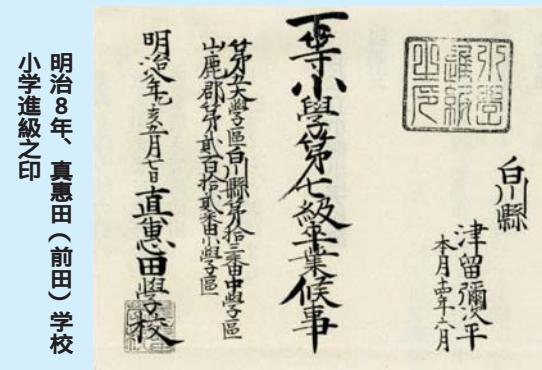 小學
進級
之印
白川縣
津留彌次平
本月十四年六月
下等小學第七級卒業候事
第五大學區白川縣第拾三番中學區
山鹿郡第貳百拾貳番小學區
明治八年乙亥五月七日 真惠田學校
明治8年、真惠田(前田)学校
小学進級之印